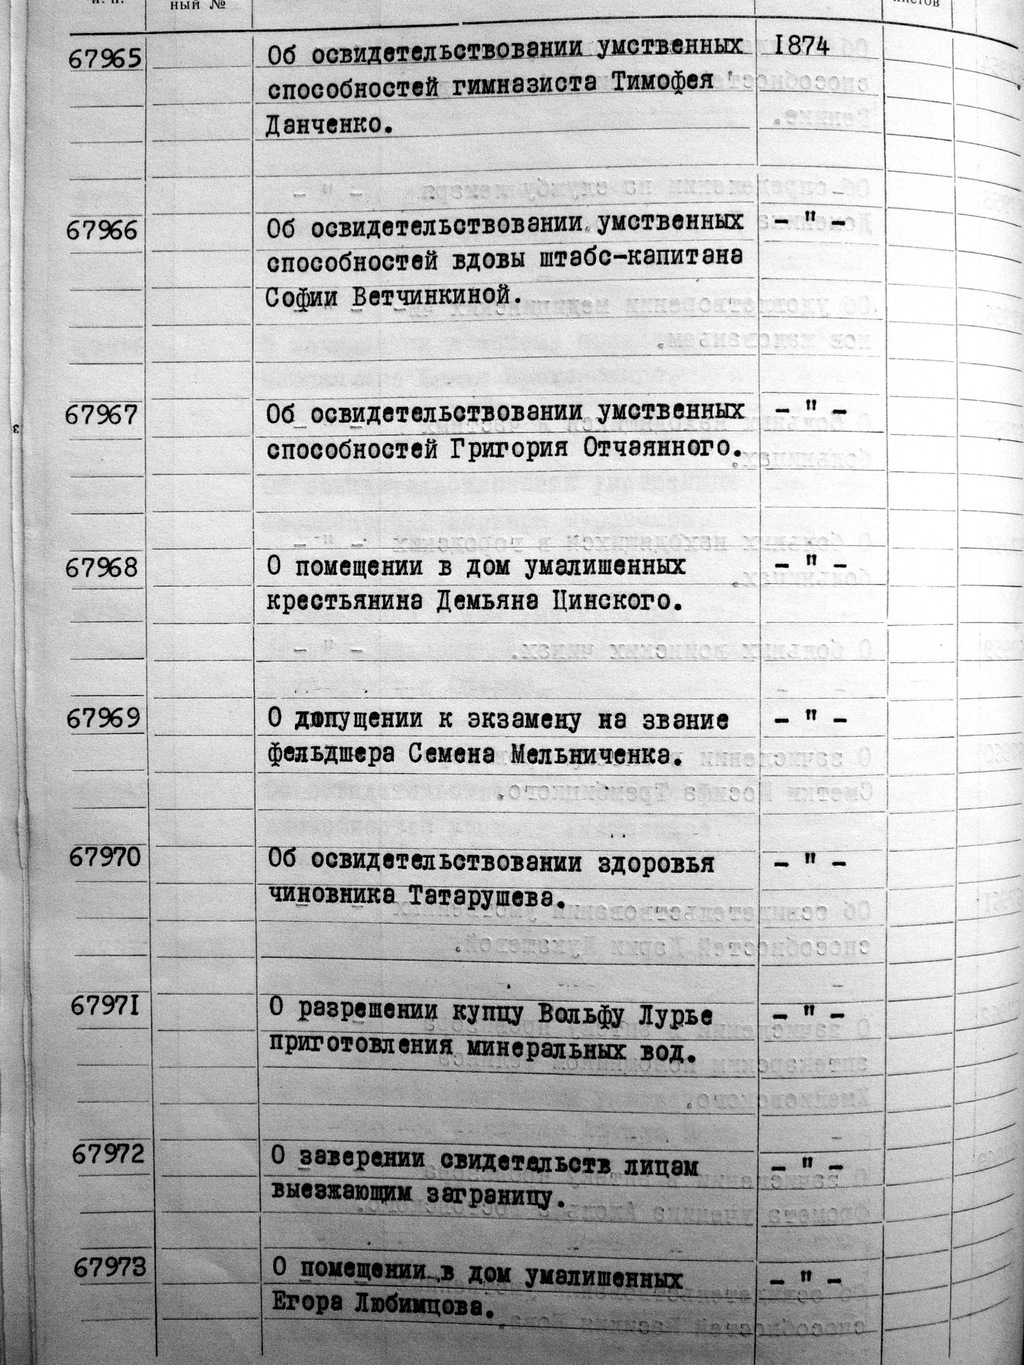 ный №
67965 Об освидетельствовании умственных 1874
способностей гимназиста Тимофея
Данченко.
67966 Об освидетельствовании умственных - " -
способностей вдовы штабс-капитана
Софии Ветчинкиной.
67967 Об освидетельствовании умственных - " -
способностей Григория Отчаянного.
67968 О помещении в дом умалишенных - " -
крестьянина Демьяна Цинского.
67969 О допущении к экзамену на звание - " -
фельдшера Семена Мельниченка.
67970 Об освидетельствовании здоровья - " -
чиновника Татарушева.
67971 О разрешении купцу Вольфу Лурье - " -
приготовления минеральных вод.
67972 О заверении свидетельств лицам - " -
выезжающим заграницу.
67973 О помещении в дом умалишенных - " -
Егора Любимцова.